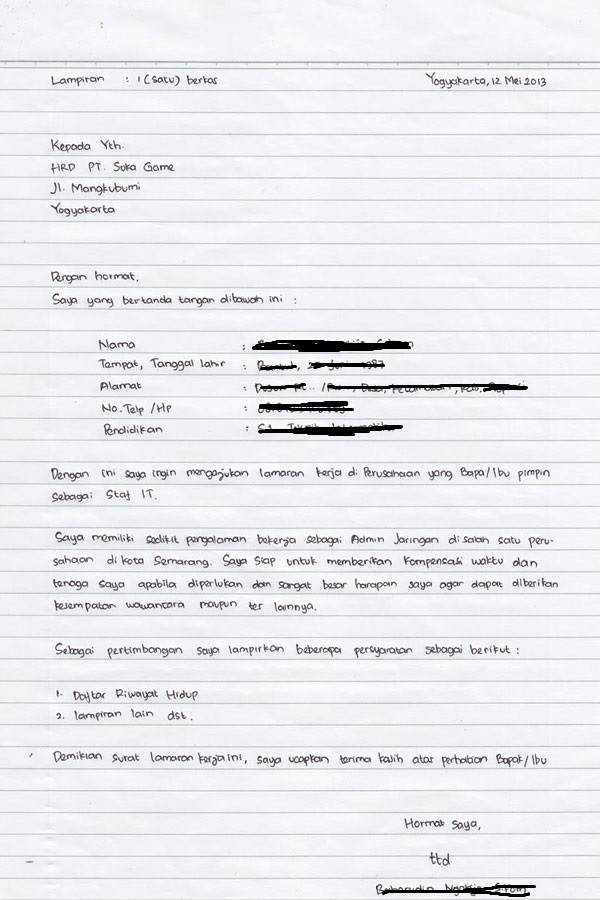 Lampiran : 1 (satu) berkas Yogyakarta, 12 Mei 2013
Kepada Yth.
HRD PT. Suka Game
Jl. Mangkubumi
Yogyakarta
Dengan hormat.
Saya yang bertanda tangan dibawah ini :
Nama :
Tempat, Tanggal lahir :
Alamat :
No. Telp /Hp :
Pendidikan :
Dengan ini saya ingin mengajukan lamaran kerja di Perusahaan yang Bapa/Ibu pimpin
sebagai Staf IT.
Saya memiliki sedikit pengalaman bekerja sebagai Admin Jaringan di salah satu peru-
sahaan di kota Semarang. Saya siap untuk memberikan kompensasi waktu dan
tenaga saya apabila diperlukan dan sangat besar harapan saya agar dapat diberikan
kesempatan wawancara maupun tes lainnya.
Sebagai pertimbangan saya lampirkan beberapa persyaratan sebagai berikut :
1. Daftar Riwayat Hidup
2. lampiran lain dst.
Demikian surat lamaran kerja ini, saya ucapkan terima kasih atas perhatian Bapak/Ibu
Hormat Saya,
ttd